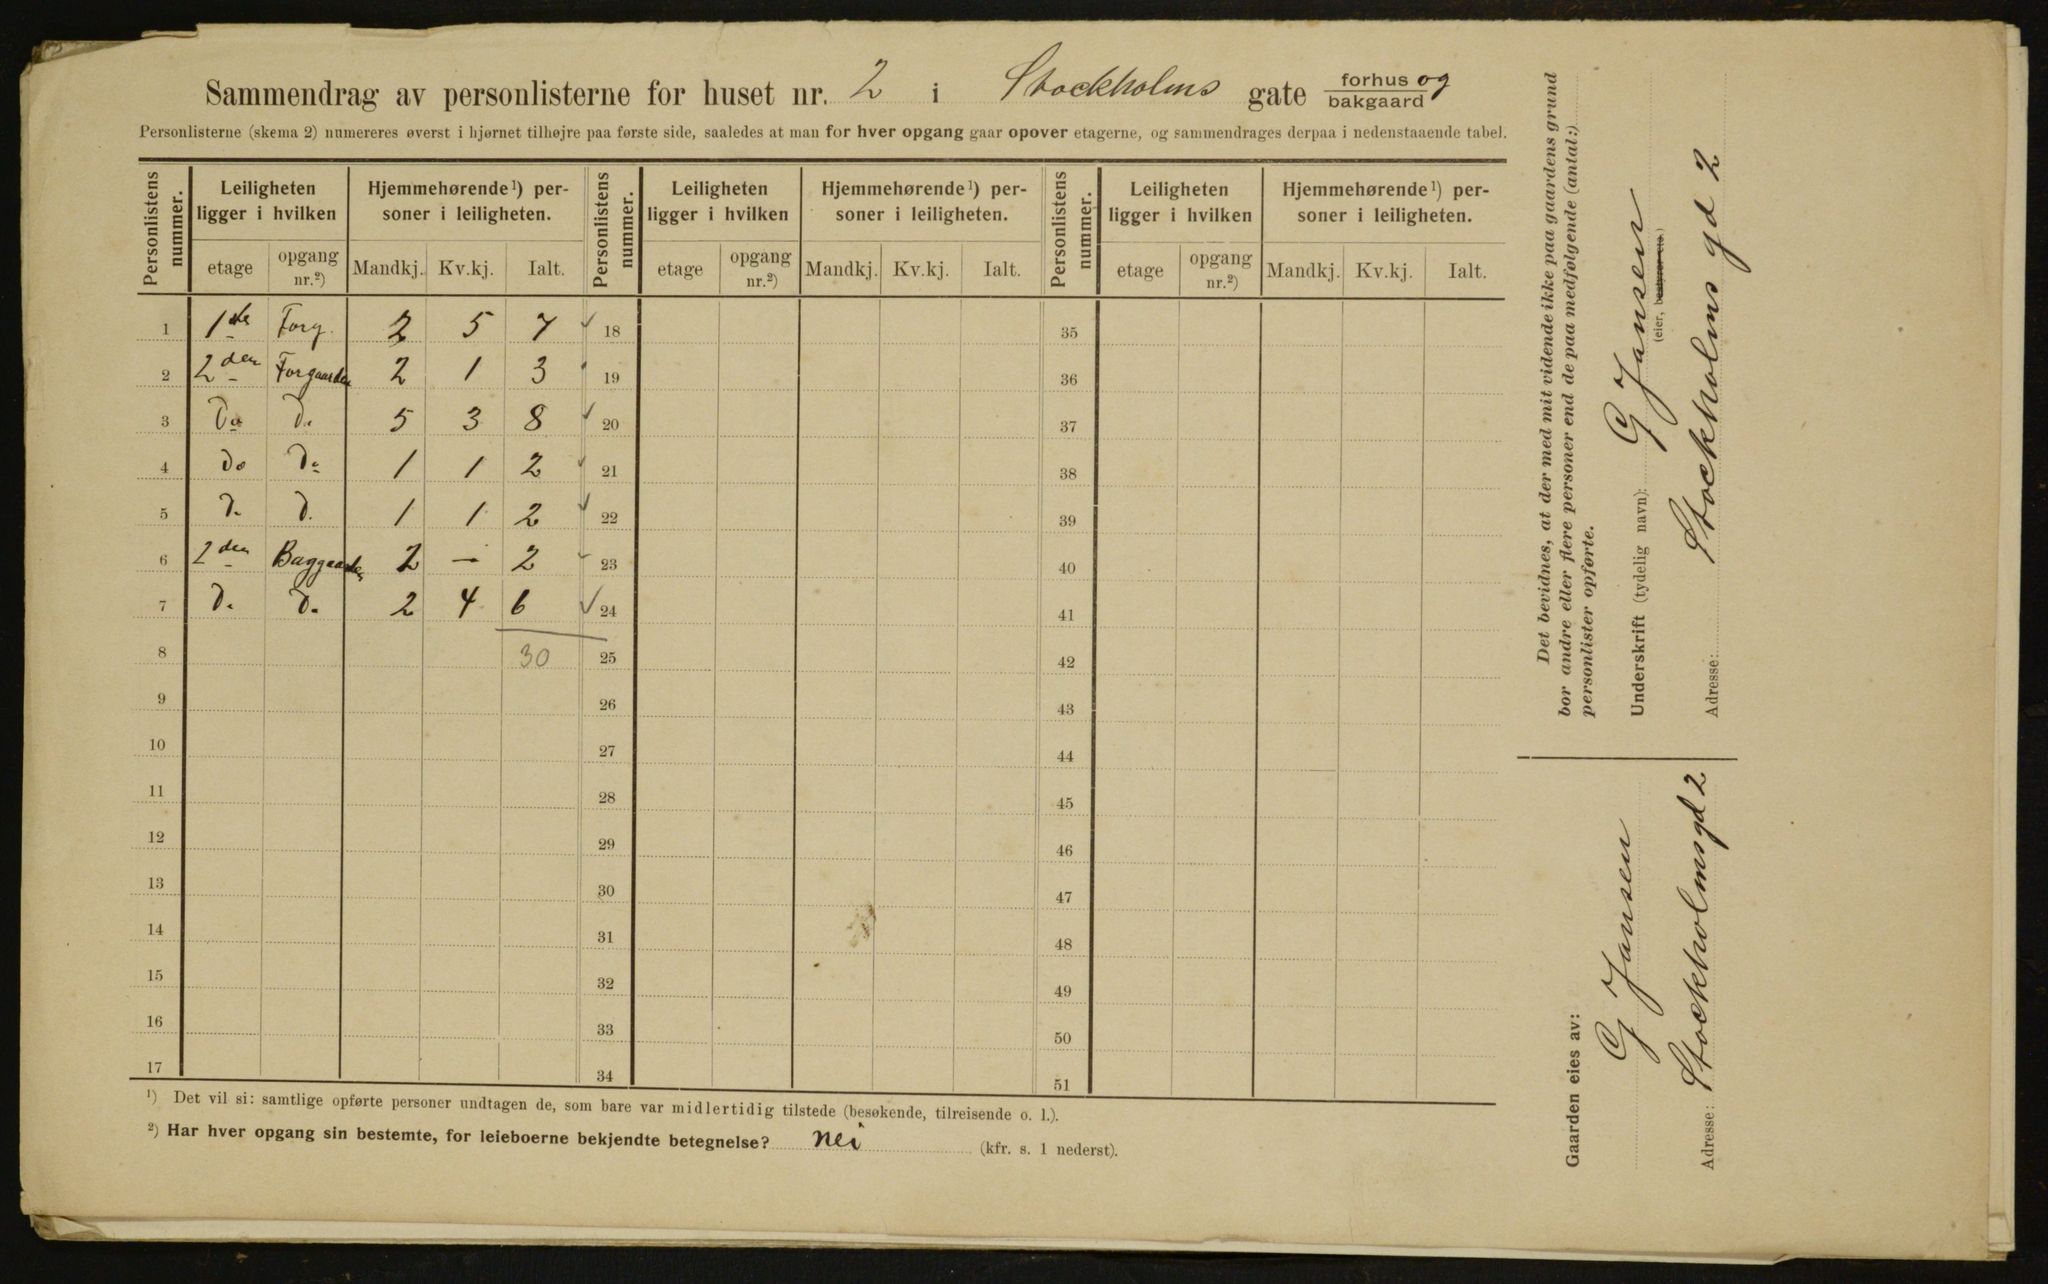 Sammendrag av personlisterne for huset nr. 2 i Stockholms gate forhus og bakgaard
Personlisterne (skema 2) numereres øverst i hjørnet tilhøjre paa første side, saaledes at man for hver opgang gaar opover etagerne, og sammendrages derpaa i nedenstaaende tabel.
Personlistens nummer. Leiligheten ligger i hvilken Hjemmehørende¹) personer i leiligheten. Personlistens nummer. Leiligheten ligger i hvilken Hjemmehørende¹) personer i leiligheten. Personlistens nummer. Leiligheten ligger i hvilken Hjemmehørende¹) personer i leiligheten.
etage opgang nr.²) Mandkj. Kv.kj. Ialt. etage opgang nr.²) Mandkj. Kv.kj. Ialt. etage opgang nr.²) Mandkj. Kv.kj. Ialt.
1 1ste Forg. 2 5 7 ✓ 18 35
2 2den Forgaarden 2 1 3 19 36
3 Do Do 5 3 8 ✓ 20 37
4 Do Do 1 1 2 ✓ 21 38
5 Do Do 1 1 2 ✓ 22 39
6 2den Baggaarden 2 — 2 ✓ 23 40
7 Do Do 2 4 6 ✓ 24 41
8 30 25 42
9 26 43
10 27 44
11 28 45
12 29 46
13 30 47
14 31 48
15 32 49
16 33 50
17 34 51
¹) Det vil si: samtlige opførte personer undtagen de, som bare var midlertidig tilstede (besøkende, tilreisende o. l.).
²) Har hver opgang sin bestemte, for leieboerne bekjendte betegnelse? nei (kfr. s. 1 nederst).
Det bevidnes, at der med mit vidende ikke paa gaardens grund
bor andre eller flere personer end de paa medfølgende (antal:)
personlister opførte.
Underskrift (tydelig navn): G Jansen
(eier, bestyrer etc.)
Adresse: Stockholms gd 2
Gaarden eies av:
G Jansen
Adresse: Stockholmsgd 2